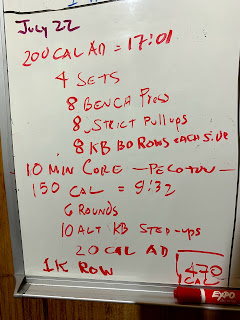 July 22
200 CAL AD = 17:01
4 SETS
8 BENCH PRESS
8 STRICT PULLUPS
8 KB BO ROWS EACH SIDE
10 MIN CORE - PELOTON -
150 CAL = 9:32
6 ROUNDS
10 ALT KB STEP-UPS
20 CAL AD
1K ROW
470
CAL
EXPO